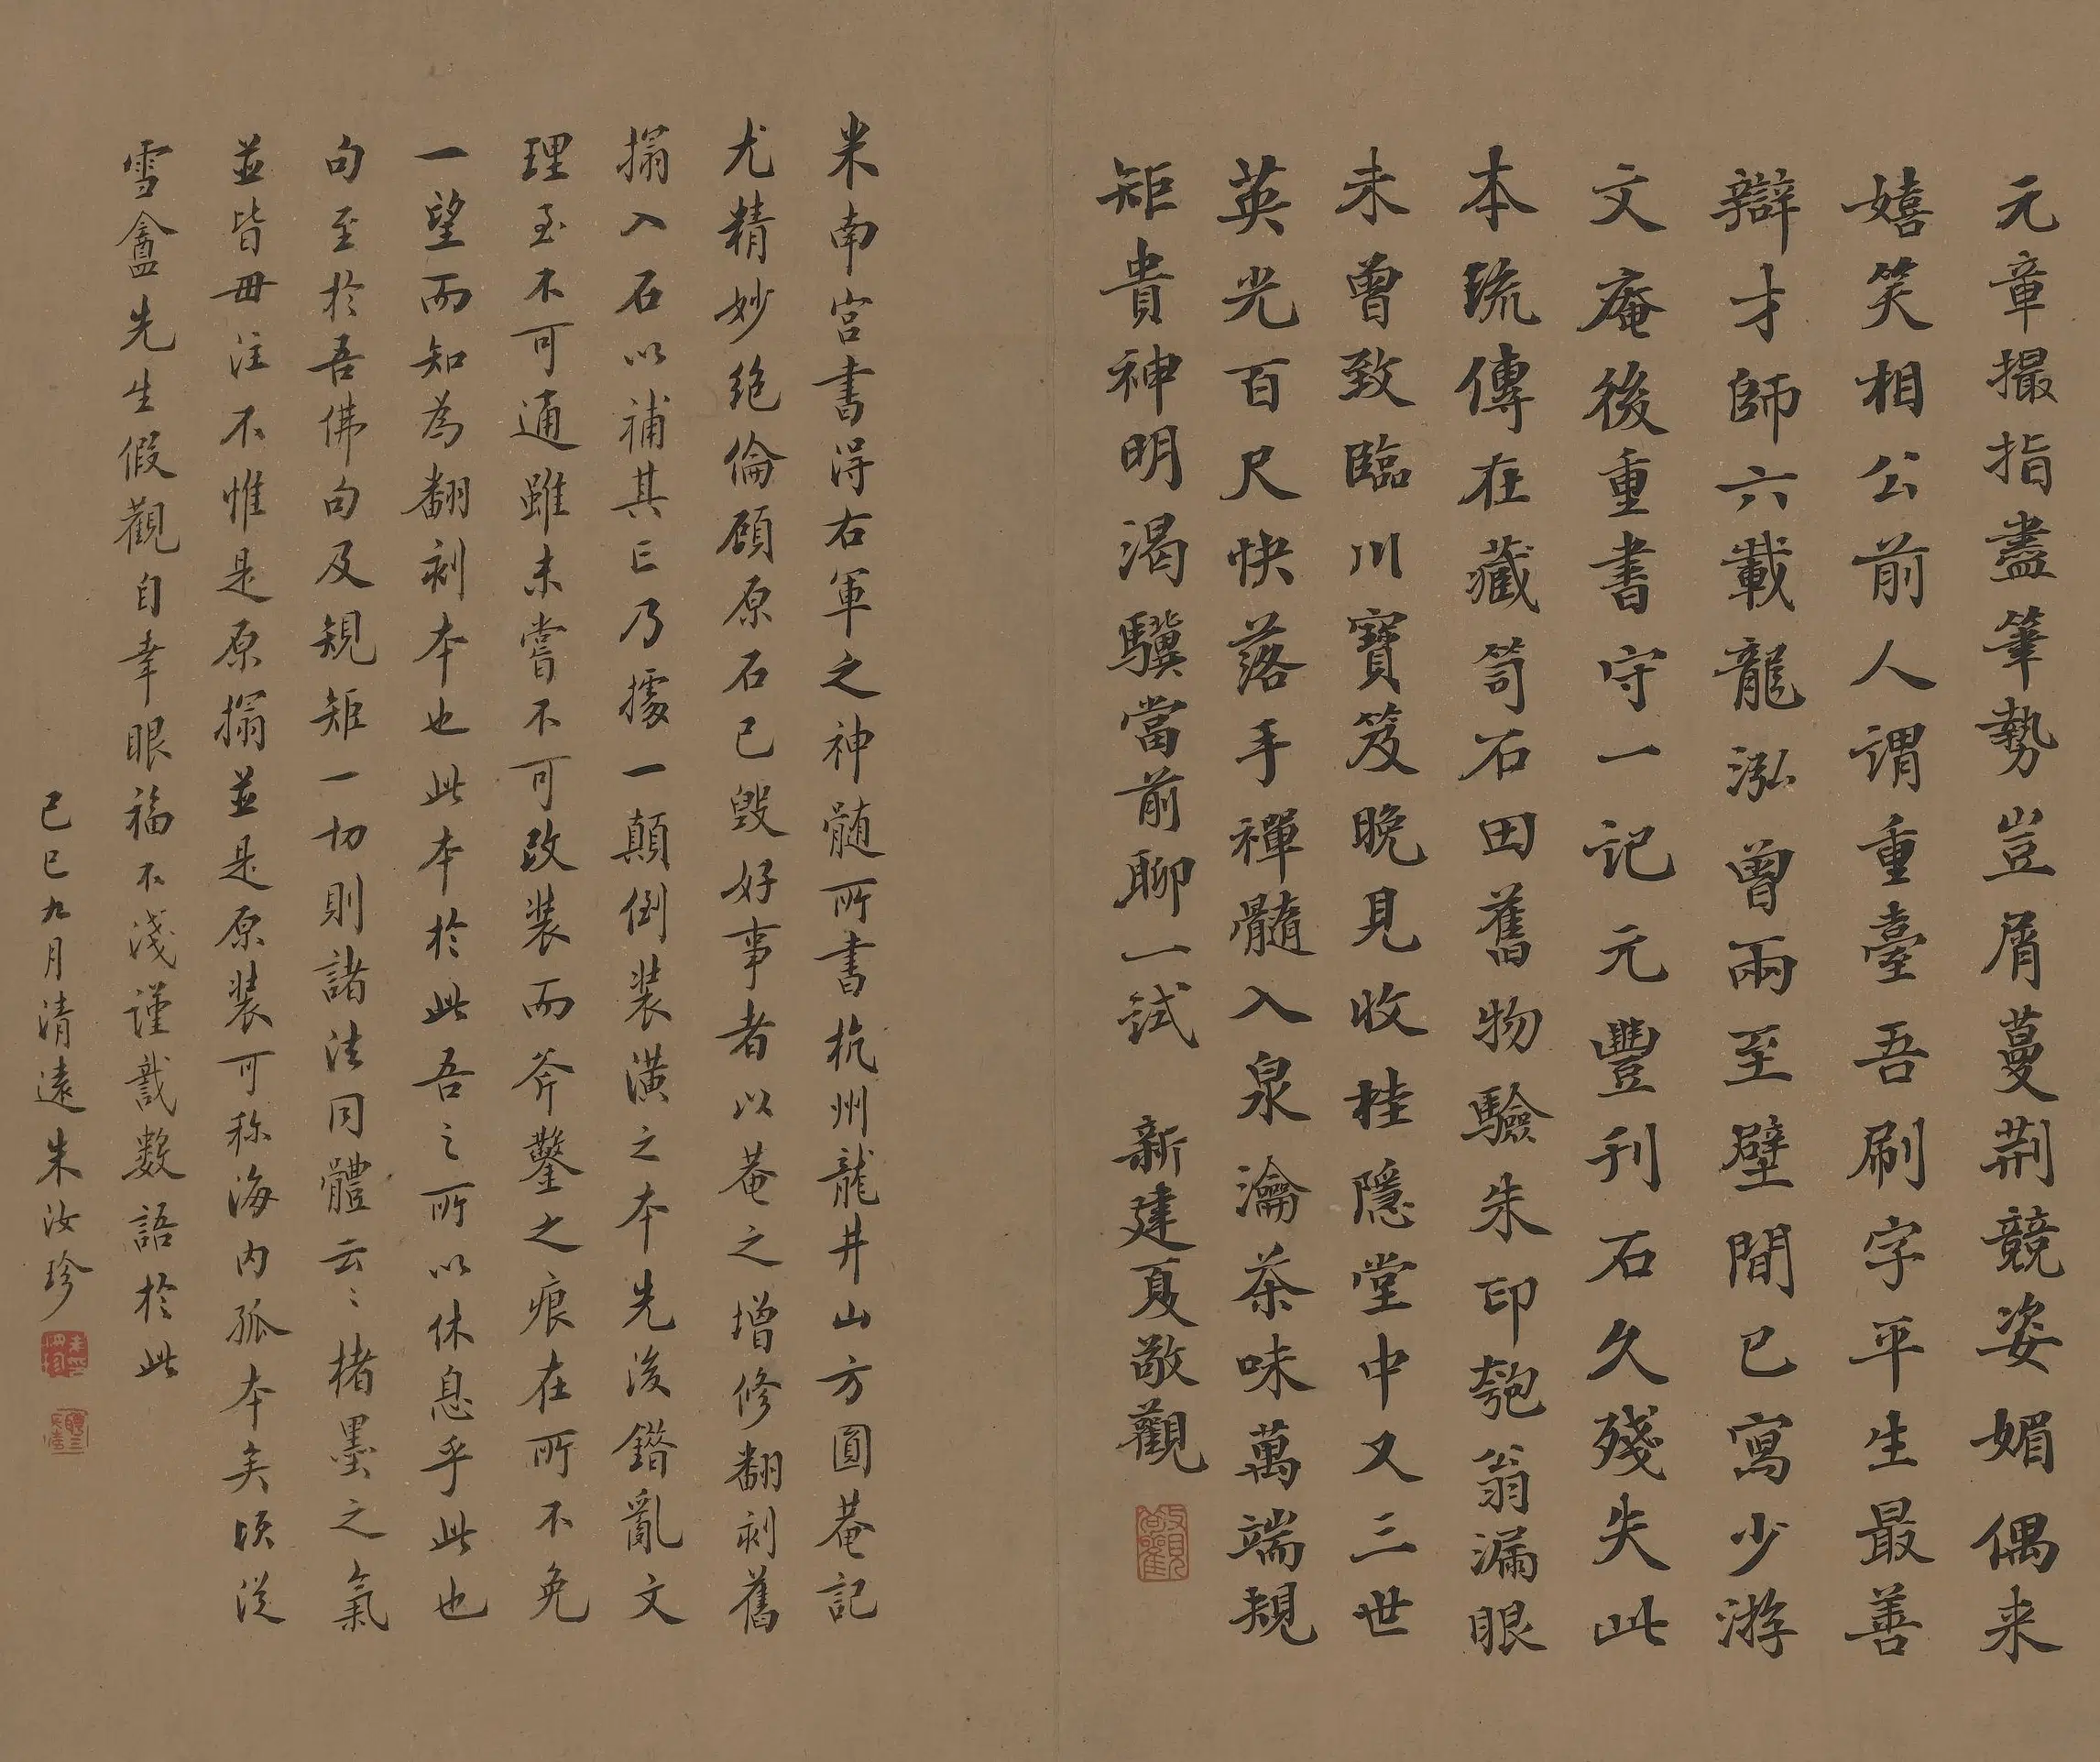 元章撮指盡筆勢豈屑蔓荆競姿媚偶来
嬉笑相公前人謂重臺吾刷字平生最善
辯才師六載龍泓曾兩至壁間已寫少游
文庵後重書守一記元豐刋石久殘失此
本琉傳在藏笥石田舊物驗朱印匏翁漏眼
未曾致臨川寶笈晚見收桂隱堂中又三世
英光百尺快落手禪髓入泉瀹茶味萬端規
矩貴神明渴驥當前聊一試 新建夏敬觀
米南宮書得右軍之神髓所書杭州龍井山方圓菴記
尤精妙絕倫顧原石已毀好事者以菴之增修翻刻舊
搨入石以補其亡乃據一顛倒裝潢之本先後錯亂文
理至不可通雖未嘗不可改裝而斧鑿之痕在所不免
一望而知為翻刻本也此本於此吾之所以休息乎此也
句至於吾佛句及規矩一切則諸法同體云〻楮墨之氣
並皆毌注不惟是原搨並是原裝可称海內孤本矣頃從
雪盦先生假觀自幸眼福不淺謹識數語於此
己巳九月清遠朱汝珍